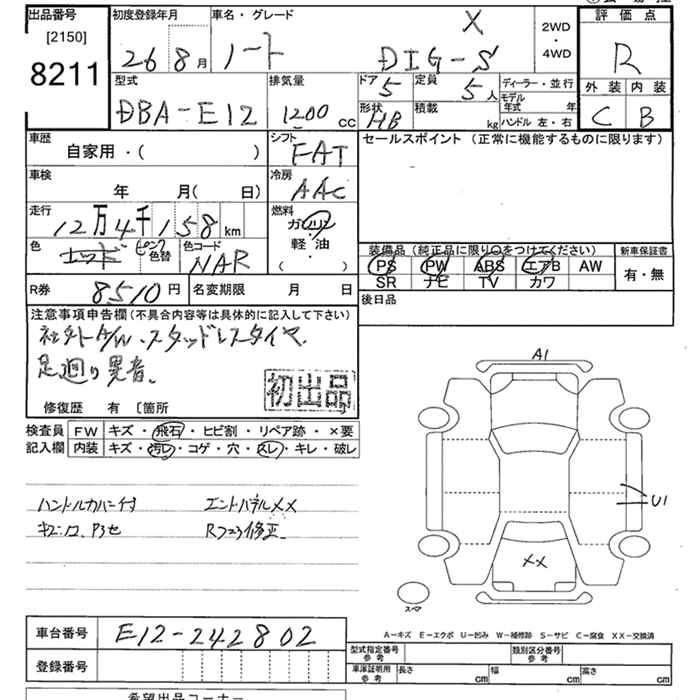 出品番号 初度登録年月 車名・グレード 評価点
[2150] X 2WD
8211 26 8月 ノート DIG-S ・ 4WD R
型式 排気量 ドア 5 定員 5人 ディーラー・並行 外装 内装
DBA-E12 1200 CC 形状 HB 積載 kg モデル年式 年 C B
ハンドル 左・右
車歴 シフト セールスポイント (正常に機能するものに限ります)
自家用・( ) FAT
車検 冷房
年 月( 日) AAC
走行 燃料
12万4千158km ガソリン
軽・油
( )
色 ピンク 色替 色コード NAR
装備品 (純正品に限り○をつけてください) 新車保証書
PS PW ABS エアB AW 有・無
SR ナビ TV カワ
R券 8510円 名変期限 月 日 後日品
注意事項申告欄 (不具合内容等は具体的に記入して下さい)
社外A/W、スタッドレスタイヤ
足廻り異音。
初出品
修復歴 有 [箇所
検査員 FW キズ・飛石・ヒビ割・リペア跡・×要
記入欄 内装 キズ・汚レ・コゲ・穴・スレ・キレ・破レ
ハンドルカバー付 エンドパネルXX
キズ凹、Pサビ Rフロア修正
A1
U1
XX
スペア
A-キズ E-エクボ U-凹み W-補修跡 S-サビ C-腐食 XX-交換済
車台番号 E12-242802
型式指定番号 参考 類別区分番号 参考
登録番号 車庫証明用 参考 長さ cm 幅 cm 高さ cm
希望出品コーナー